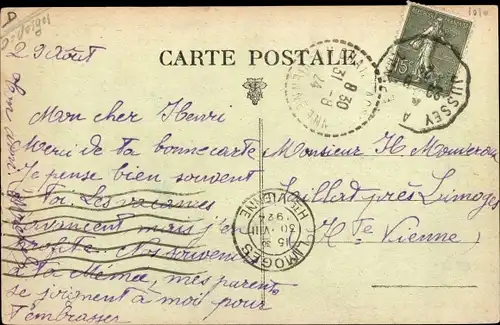 29 Août
CARTE POSTALE
Mon cher Henri
Merci de ta bonne carte
Je pense bien souvent
à toi. Les vacances
avancent mais j'en
profite. Nos souvenirs
à ta Mémé, mes parents
se joignent à moi pour
t'embrasser
Monsieur H.
près Limoges
Hte Vienne
LIMOGES
15 30
30 - VIII
924
Hte VIENNE
8 30
31 - 8
24
JUSSEY A
15